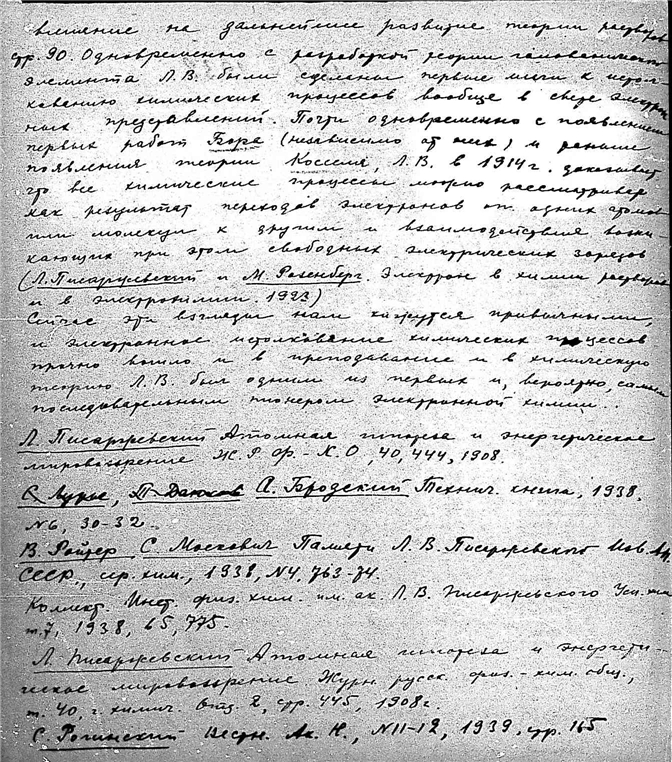 влияние на дальнейшие развитие теории растворов
стр. 90. Одновременно с разработкой теории гальванического
элемента Л.В. были сделаны первые шаги к истол-
кованию химических процессов вообще в свете электрон-
ных представлений. Почти одновременно с появлением
первых работ Бора (независимо от них) и раньше
появления теории Косселя, Л.В. в 1914 г. доказывает
что все химические процессы можно рассматривать
как результат переходов электронов от одних атомов
или молекул к другим и взаимодействия возни-
кающих при этом свободных электрических зарядов
(Л. Писаржевский и М. Розенберг. Электрон в химии растворов
и в электрохимии. 1923)
Сейчас эти взгляды нам кажутся привычными,
и электронное истолкование химических процессов
прочно вошло и в преподавание и в химическую
теорию Л.В. был одним из первых и, вероятно, самым
последовательным пионером электронной химии..
Л. Писаржевский Атомная гипотеза и энергетическое
мировоззрение Ж.Р.Ф.-Х.О., 40, 444, 1908.
С. Лурье, П. Данков А. Бродский Технич. книга, 1938,
№6, 30-32.
В. Ройтер, С. Москович Памяти Л.В. Писаржевского Изв. Ак.
СССР., сер. хим., 1938, №4, 763-74.
Коллект. Инст. физ. хим. им. ак. Л.В. Писаржевского Усп. хим
т.7, 1938, 65, 775.
Л. Писаржевский Атомная гипотеза и энергети-
ческое мировоззрение Журн. русск. физ.-хим. общ.,
т. 40, г. химич. Отд. 2, стр. 445, 1908 г.
С. Рогинский Вестн. Ак. Н., №11-12, 1939, стр. 165